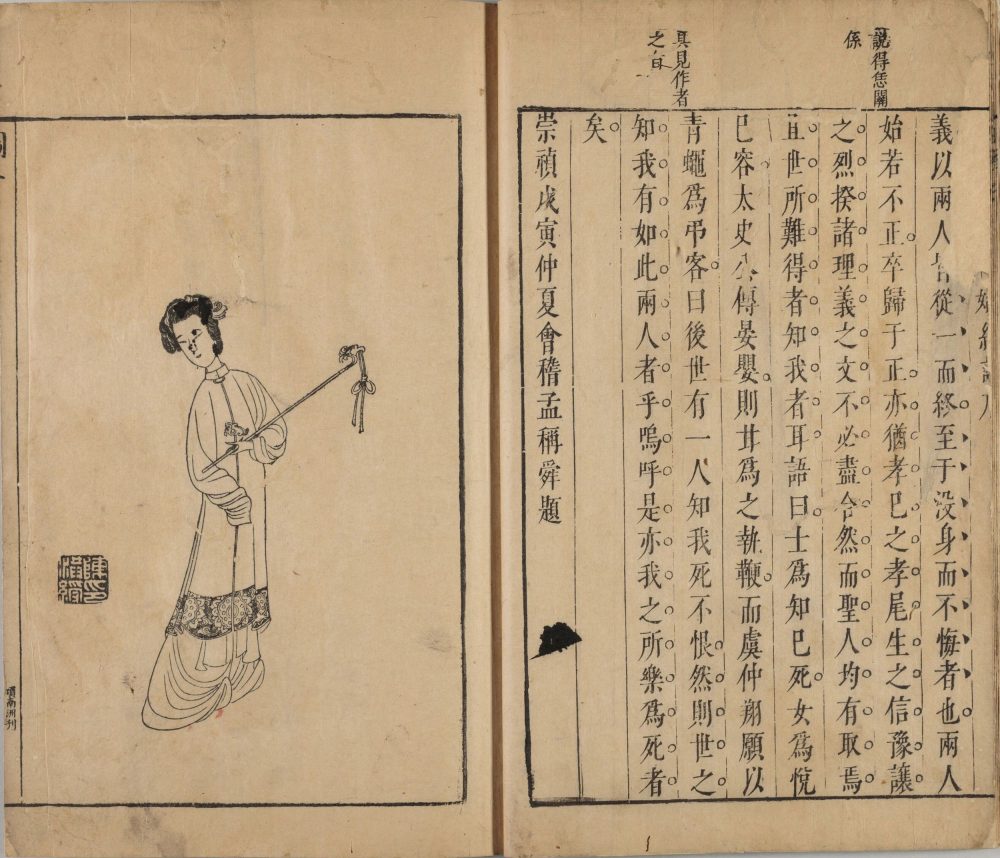 說得恁關
係
具見作者
之旨
義以兩人皆從一而終至于没身而不悔者也兩人
始若不正卒歸于正亦猶孝巳之孝尾生之信豫讓
之烈揆諸理義之文不必盡合然而聖人均有取焉
且世所難得者知我者耳語曰士爲知巳死女爲悅
巳容太史公傳晏嬰則甘爲之執鞭而虞仲翔願以
青蠅爲弔客曰後世有一人知我死不恨然則世之
知我有如此兩人者乎嗚呼是亦我之所樂爲死者
矣
崇禎戊寅仲夏會稽孟稱舜題
陳印
洪綬
項南洲刊